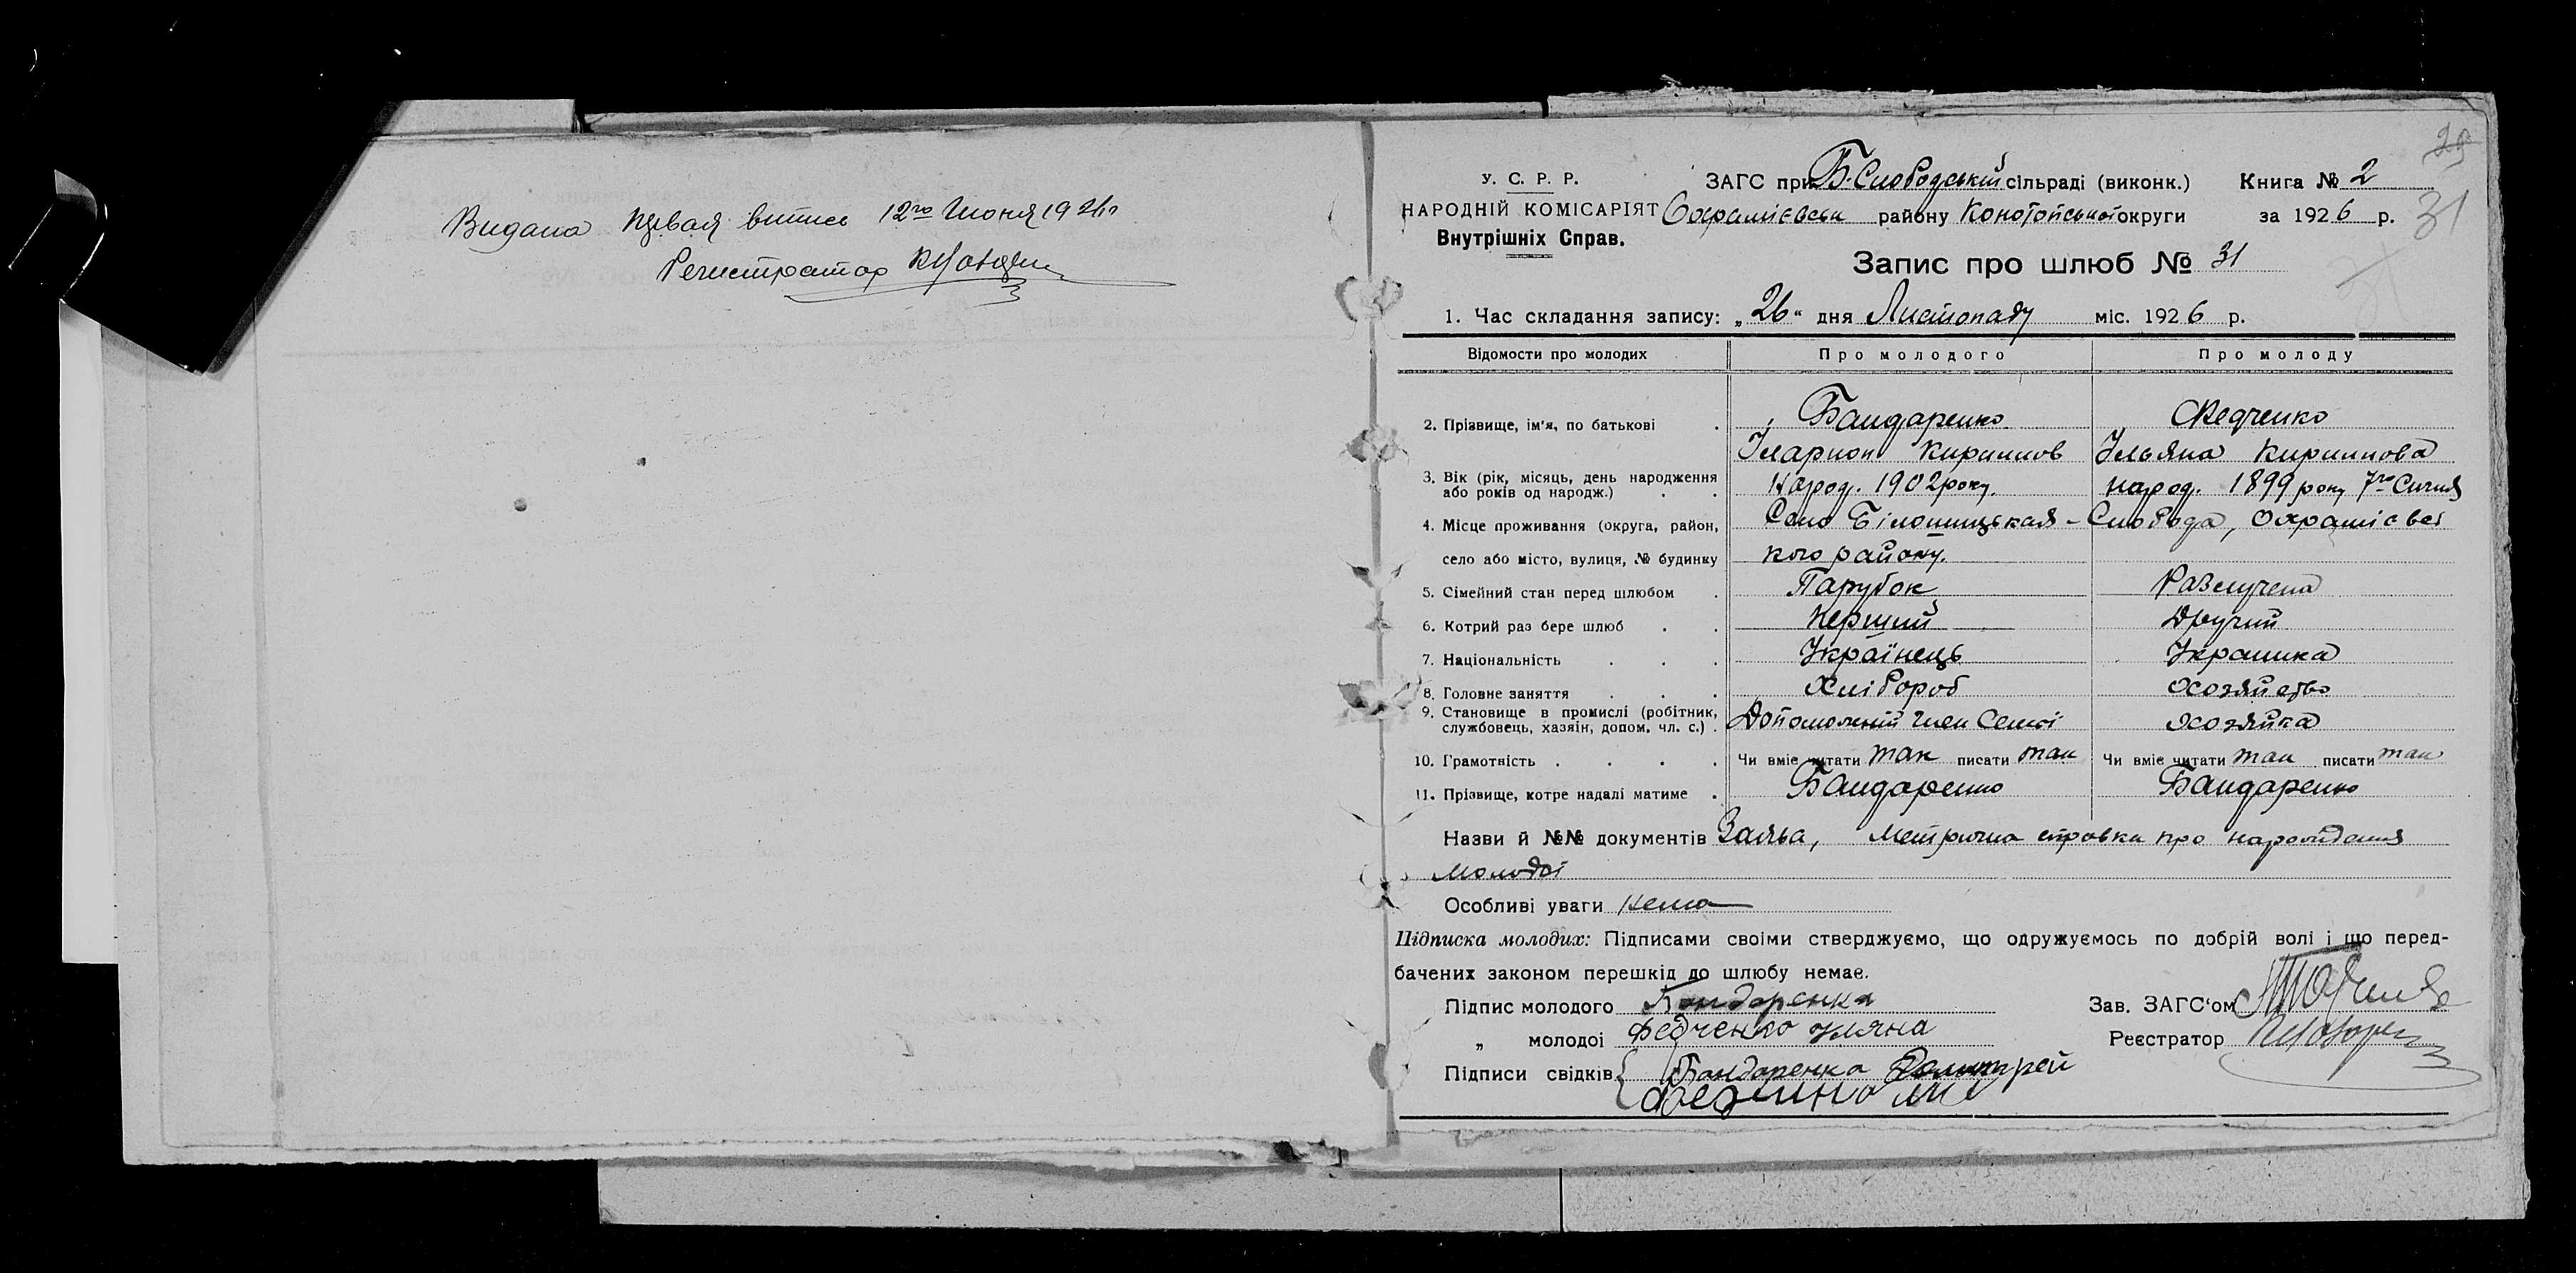 Видана первая випись 12го Июня 1926 г
Регистратор
29
31
У. С. Р. Р.
НАРОДНІЙ КОМІСАРІЯТ
Внутрішніх Справ.
ЗАГС при Б.-Слободській сільраді (виконк.) Книга № 2
району Конотопської округи за 1926 р.
Запис про шлюб № 31
1. Час складання запису: „26“ дня Листопаду міс. 1926 р.
Відомости про молодих Про молодого Про молоду
2. Прізвище, ім'я, по батькові . Бандаренко Федченко
Іларион Кирилов Ульяна Кирилова
3. Вік (рік, місяць, день народження або років од народж.) . . Народ. 1902 року. народ. 1899 року 7го Січня
4. Місце проживання (округа, район, Село Білопицькая-Слобода,
село або місто, вулиця, № будинку кого району.
5. Сімейний стан перед шлюбом . Парубок Разлучена
6. Котрий раз бере шлюб . . Перший Другий
7. Національність . . . Українець Українка
8. Головне заняття . . . Хлібороб Хозяйство
9. Становище в промислі (робітник, службовець, хазяін, допом. чл. с.) . Допоможний член Семьї Хозяйка
10. Грамотність . . . . Чи вміє читати так писати так Чи вміє читати так писати так
11. Прізвище, котре надалі матиме . Бандаренко Бандаренко
Назви й №№ документів Заява, Метрична справка про народження
молодої
Особливі уваги нема
Підписка молодих: Підписами своіми стверджуємо, що одружуємось по добрій волі і що перед-
бачених законом перешкід до шлюбу немає.
Підпис молодого Бондаренка Зав. ЗАГС‘ом
„ молодоі Федченко Уляна Реєстратор
Підписи свідків Бондаренка Дмитрей